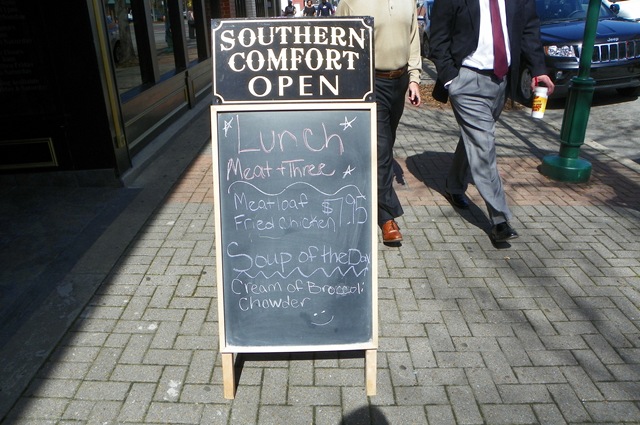 SOUTHERN
COMFORT
OPEN
Lunch
Meat + Three
Meatloaf $7.95
Fried Chicken
Soup of the Day
Cream of Broccoli
Chowder
Jeep